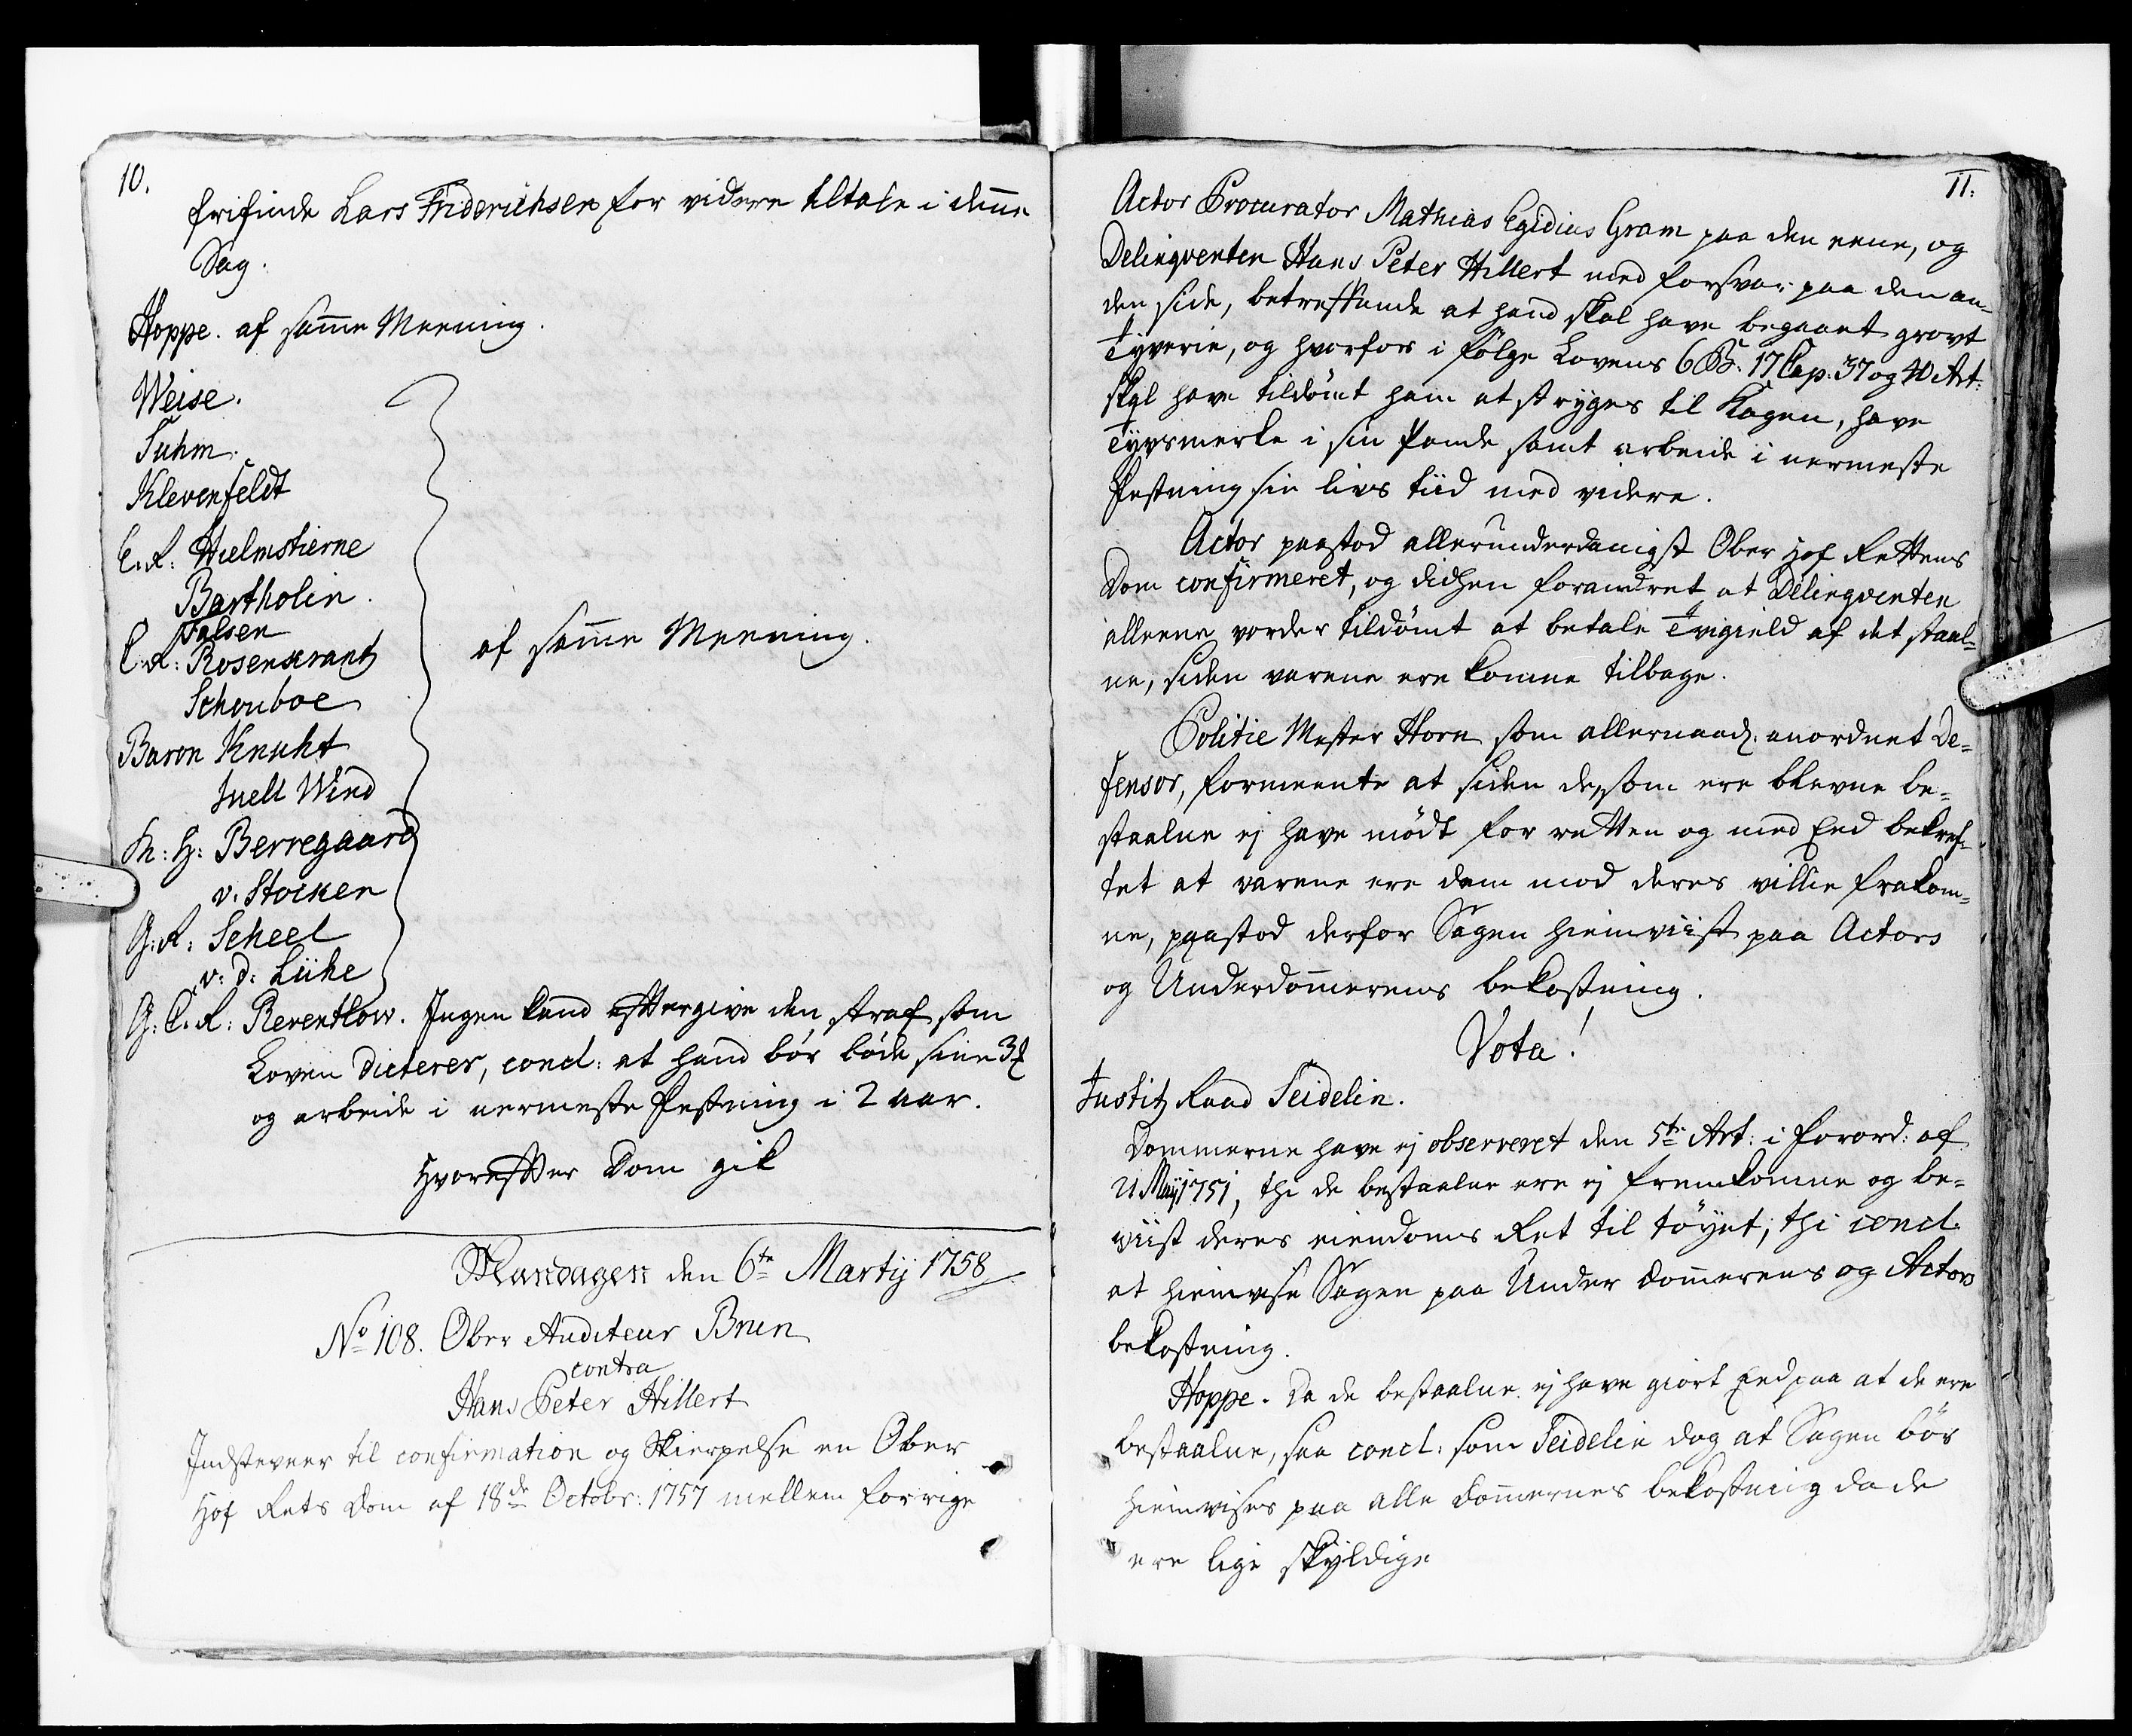 10.
frifinde Lars Friderichsen for videre tiltale i denne
Sag.
Hoppe. af samme Meening.
Weise.
Suhm.
Klevenfeldt
C. R: Hielmstierne
Bartholin.
Falsen
C. R: Rosenkrantz
Schouboe
Baron Knuht
Juell Wind
af samme Meening.
K: H: Berregaard
v. Stocken
G: R: Scheel
v: d: Lühe
G: C. R: Reventlow. Ingen kand eftergive den straf som
Loven dicterer, concl: at hand bør bøde sine 3
og arbeide i nermeste Festning i 2 aar.
Hvorefter Dom gik
Mandagen den 6te Martij 1758
No 108. Ober Auditeur Brun
contra
Hans Peter Hillert
Indstevner til confirmation og Skierpelse en Ober
Hof Rets Dom af 18de Octobr: 1757 mellem forrige
11:
Actor Procurator Mathias Egidius Gram paa den eene, og
Delinqventen Hans Peter Hillert med forsvar paa den an-
den side, betreffende at hand skal have begaaet grovt
Tyverie, og hvorfor i følge Lovens 6 B: 17 Cap: 37 og 40 Art:
skal have tildømt ham at stryges til Kagen, have
Tyvsmerke i sin Pande samt arbeide i nermeste
Festning sin livs tiid med videre.
Actor paastod allerunderdanigst Ober Hof Rettens
Dom confirmeret, og didhen forandret at Delinqventen
alleene vorder tildømt at betale Tvigield af det staal=
ne, siden varene ere komne tilbage.
Politie Mester Horn som allernaad: anordnet De=
fensor, formeente at siden de, som ere blevne be=
staalne ej have mødt for retten og med Eed bekref=
tet at varene ere dem mod deres villie frakom=
ne, paastod derfor Sagen hiemviist paa Actors
og Underdommerens bekostning.
Vota!
Justitz Raad Seidelin.
Dommerne have ej observeret den 5te Art: i Forord: af
21 Maij 1751, thi de bestaalne ere ej fremkomne og be=
viist deres eiendoms Ret til tøyet; thi concl.
at hiemvise Sagen paa Under Dommerens og Actors
bekostning.
Hoppe. Da de bestaalne ej have giort Eed paa at de ere
bestaalne, saa concl: som Seidelin dog at Sagen bør
hiemvises paa alle Dommernes bekostning da de
ere lige skyldige